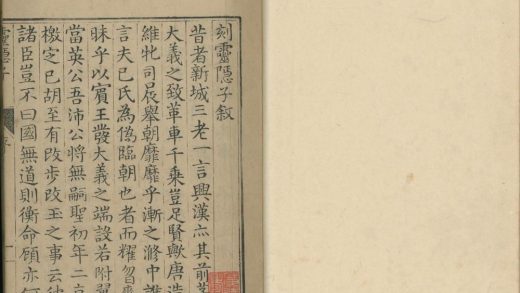 刻靈隱子敘
昔者新城三老一言興漢亦其前
大義之致革車千乘豈足賢歟唐造
維牝司晨舉朝靡靡乎漸之滫中誰
言夫己氏為偽臨朝也者而耀
昧乎以賓王發大義之端設若附翼
當英公吾沛公將無嗣聖初年二京
檄定已胡至有改步改玉之事云
諸臣豈不曰國無道則衡命顧亦何
靈隱子